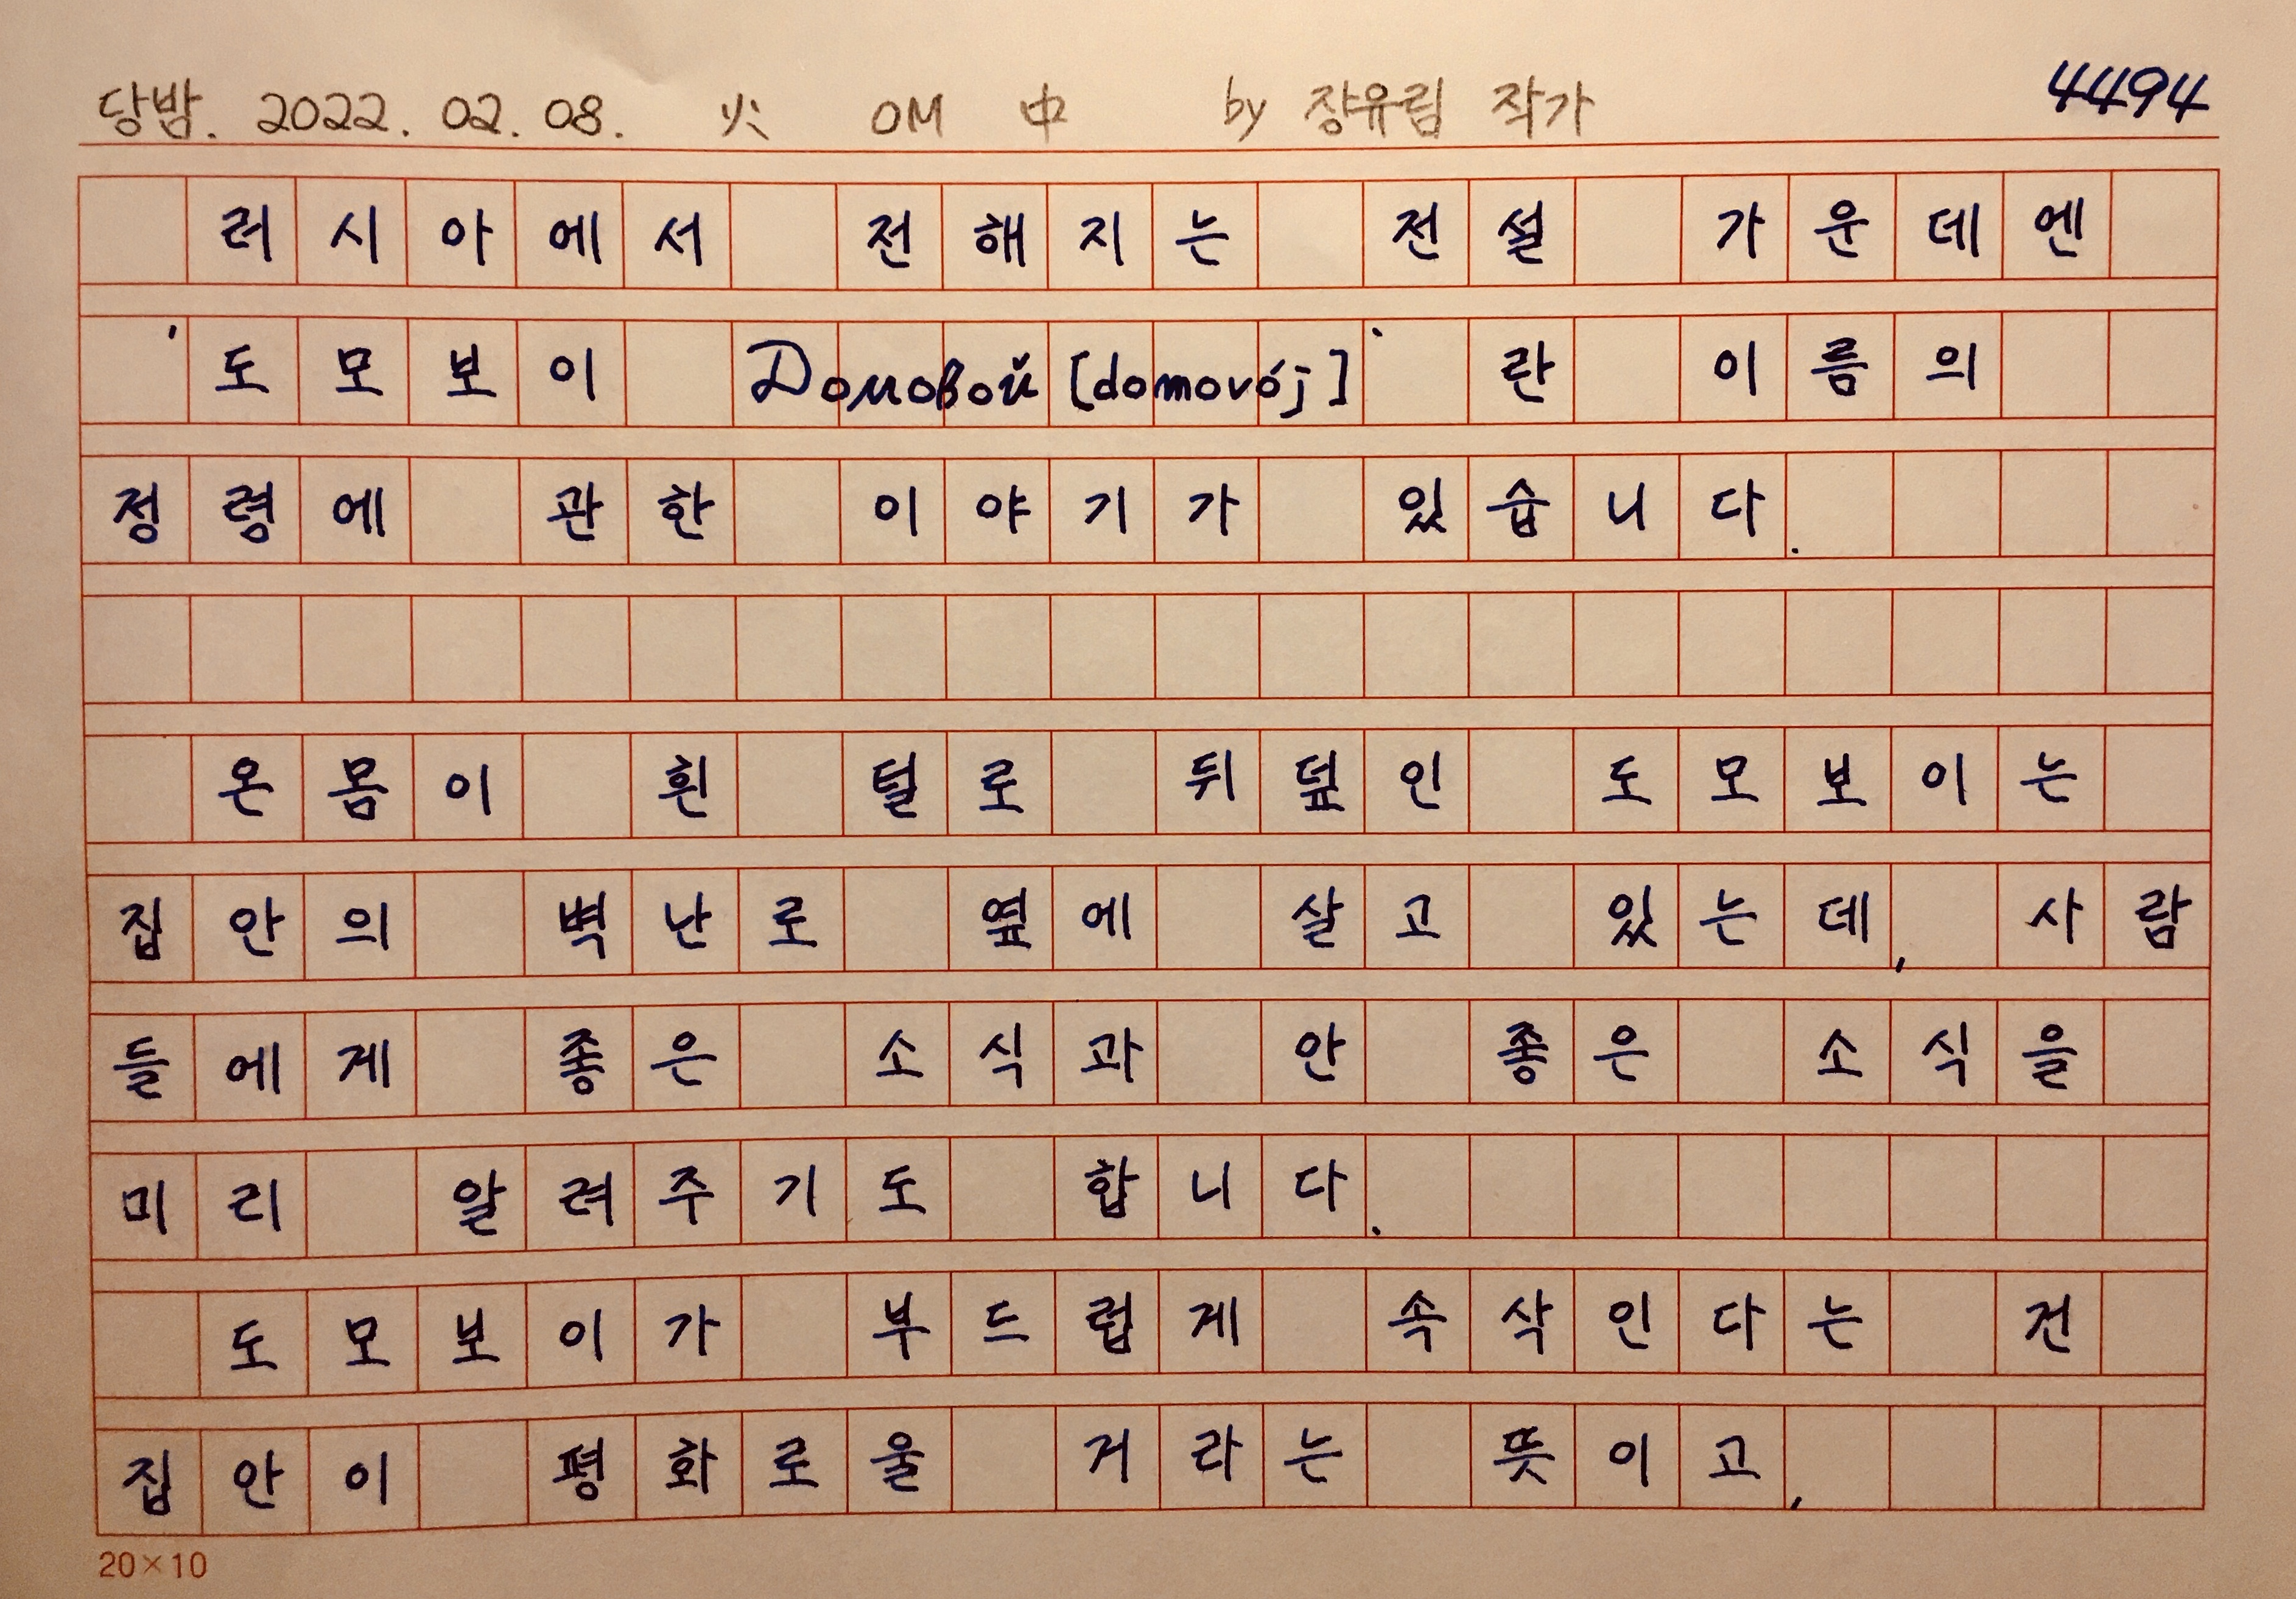 당밤. 2022. 02. 08. 火 OM 中 by 장유림 작가 4494
러시아에서 전해지는 전설 가운데엔
'도모보이 Домовой [domovój]'란 이름의
정령에 관한 이야기가 있습니다.
온몸이 흰 털로 뒤덮인 도모보이는
집안의 벽난로 옆에 살고 있는데, 사람
들에게 좋은 소식과 안 좋은 소식을
미리 알려주기도 합니다.
도모보이가 부드럽게 속삭인다는 건
집안이 평화로울 거라는 뜻이고,
20×10